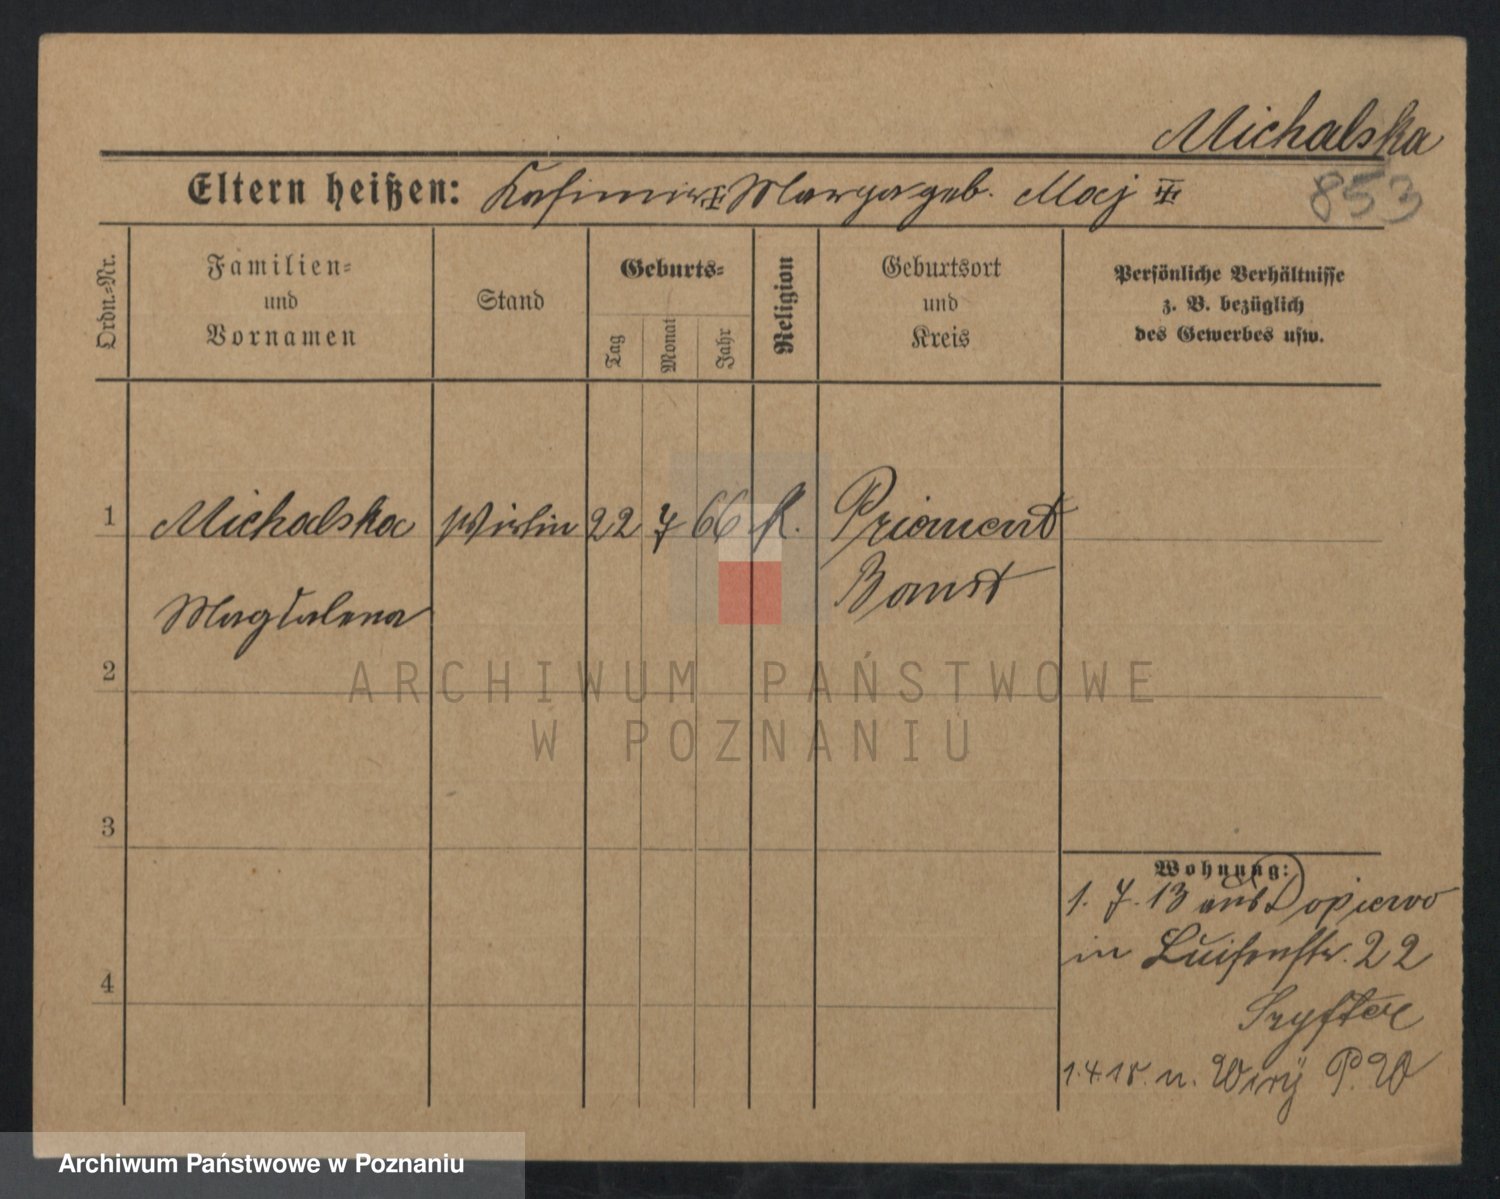 Michalska
Eltern heißen: Kasimir ‡ Marya geb. Maj ‡
853
Ordn.-Nr.
Familien-
und
Vornamen
Stand
Geburts-
Tag
Monat
Jahr
Religion
Geburtsort
und
Kreis
Persönliche Verhältnisse
z. B. bezüglich
des Gewerbes usw.
1 Michalska Wirtin 22 7 66 K. Priament
Bomst
Magdalena
2
ARCHIWUM PAŃSTWOWE
W POZNANIU
3
Wohnung:
1. 7. 13 aus Dopiewo
in Luisenstr. 22
4
Szyfter
1.4.18. n. Wiry P.W
Archiwum Państwowe w Poznaniu